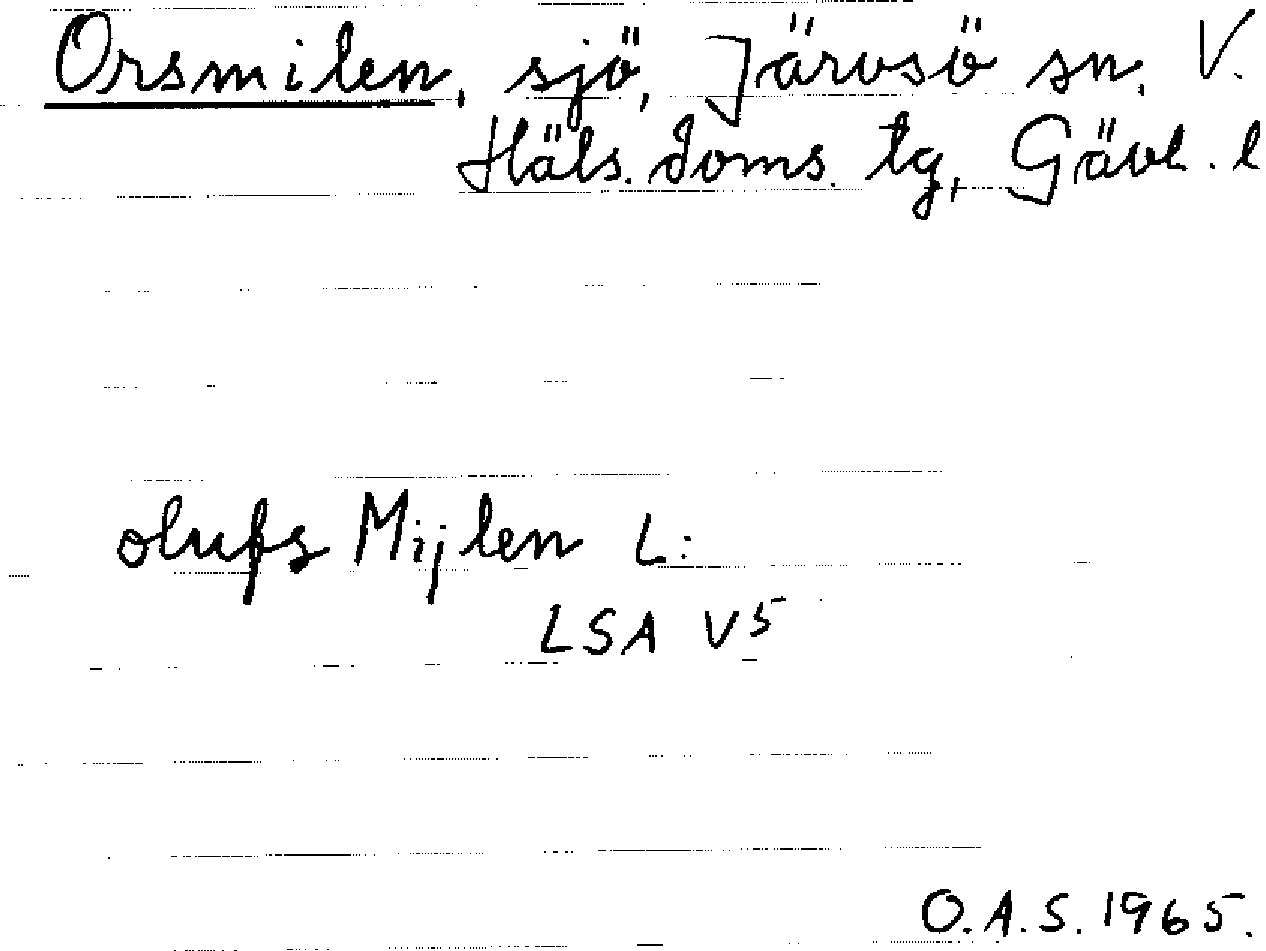 Orsmilen, sjö, Järvsö sn, V.
Häls. doms. tg, Gävl. l
olufs Mijlen L:
LSA V5
O.A.S. 1965.